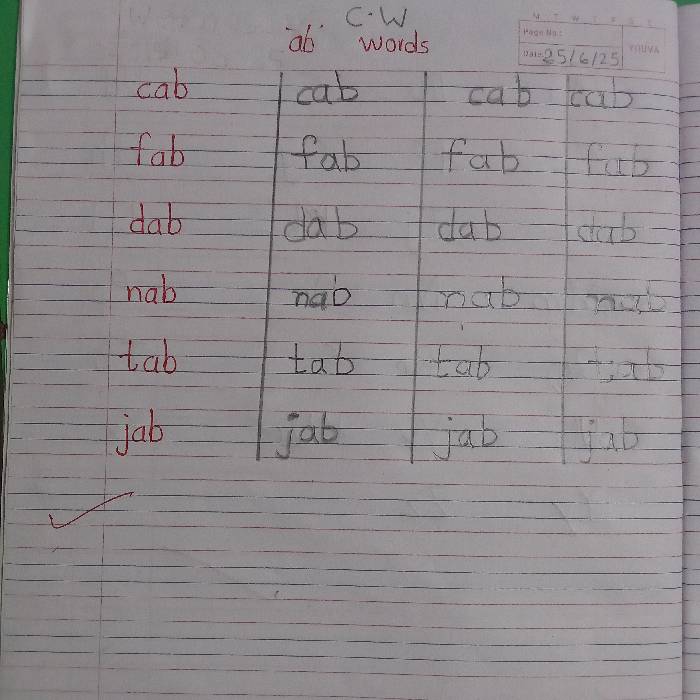 C·W
M T W T F S S
Page No.:
'ab' words
Date: 25/6/25 YOUVA
cab cab cab cab
fab fab fab fab
dab dab dab dab
nab nab nab nab
tab tab tab tab
jab jab jab jab